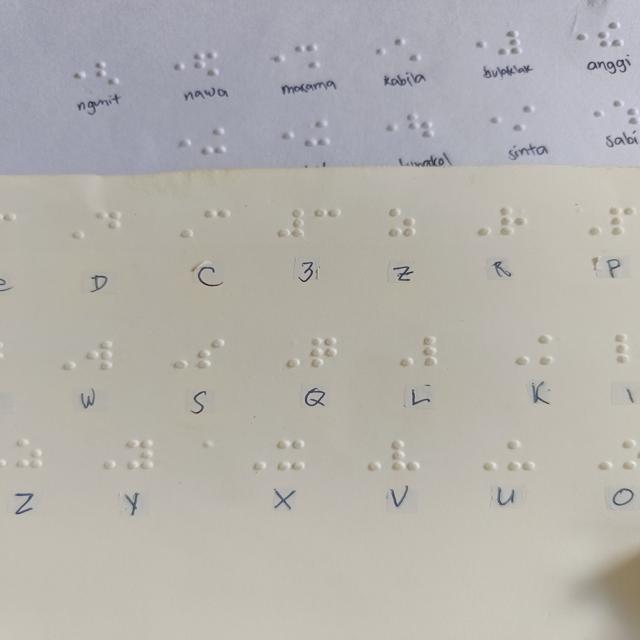 ngunit nawa masama kabila bulaklak anggi
sinta sabi
e D C 3 Z R P
W S Q L K I
Z Y X V U O